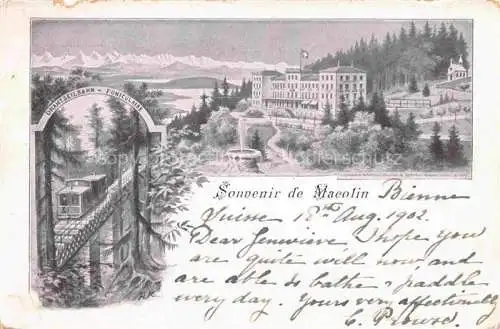 DRAHTSEILBAHN - FUNICULAIRE
Souvenir de Macolin Bienne
Suisse 18th Aug. 1902.
Dear Genevieve I hope you
are quite well now and
are able to bathe & paddle
every day. Yours very affectionately